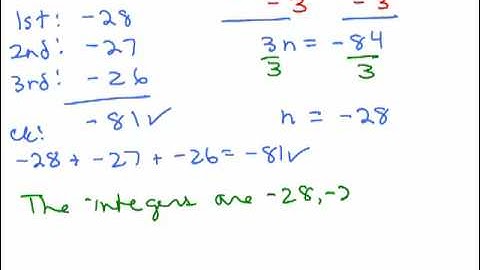 1st: -28
2nd: -27
3rd: -26
-81✓
ck:
-28 + -27 + -26 = -81✓
- 3 - 3
3n = -84
3 3
n = -28
The integers are -28, -2